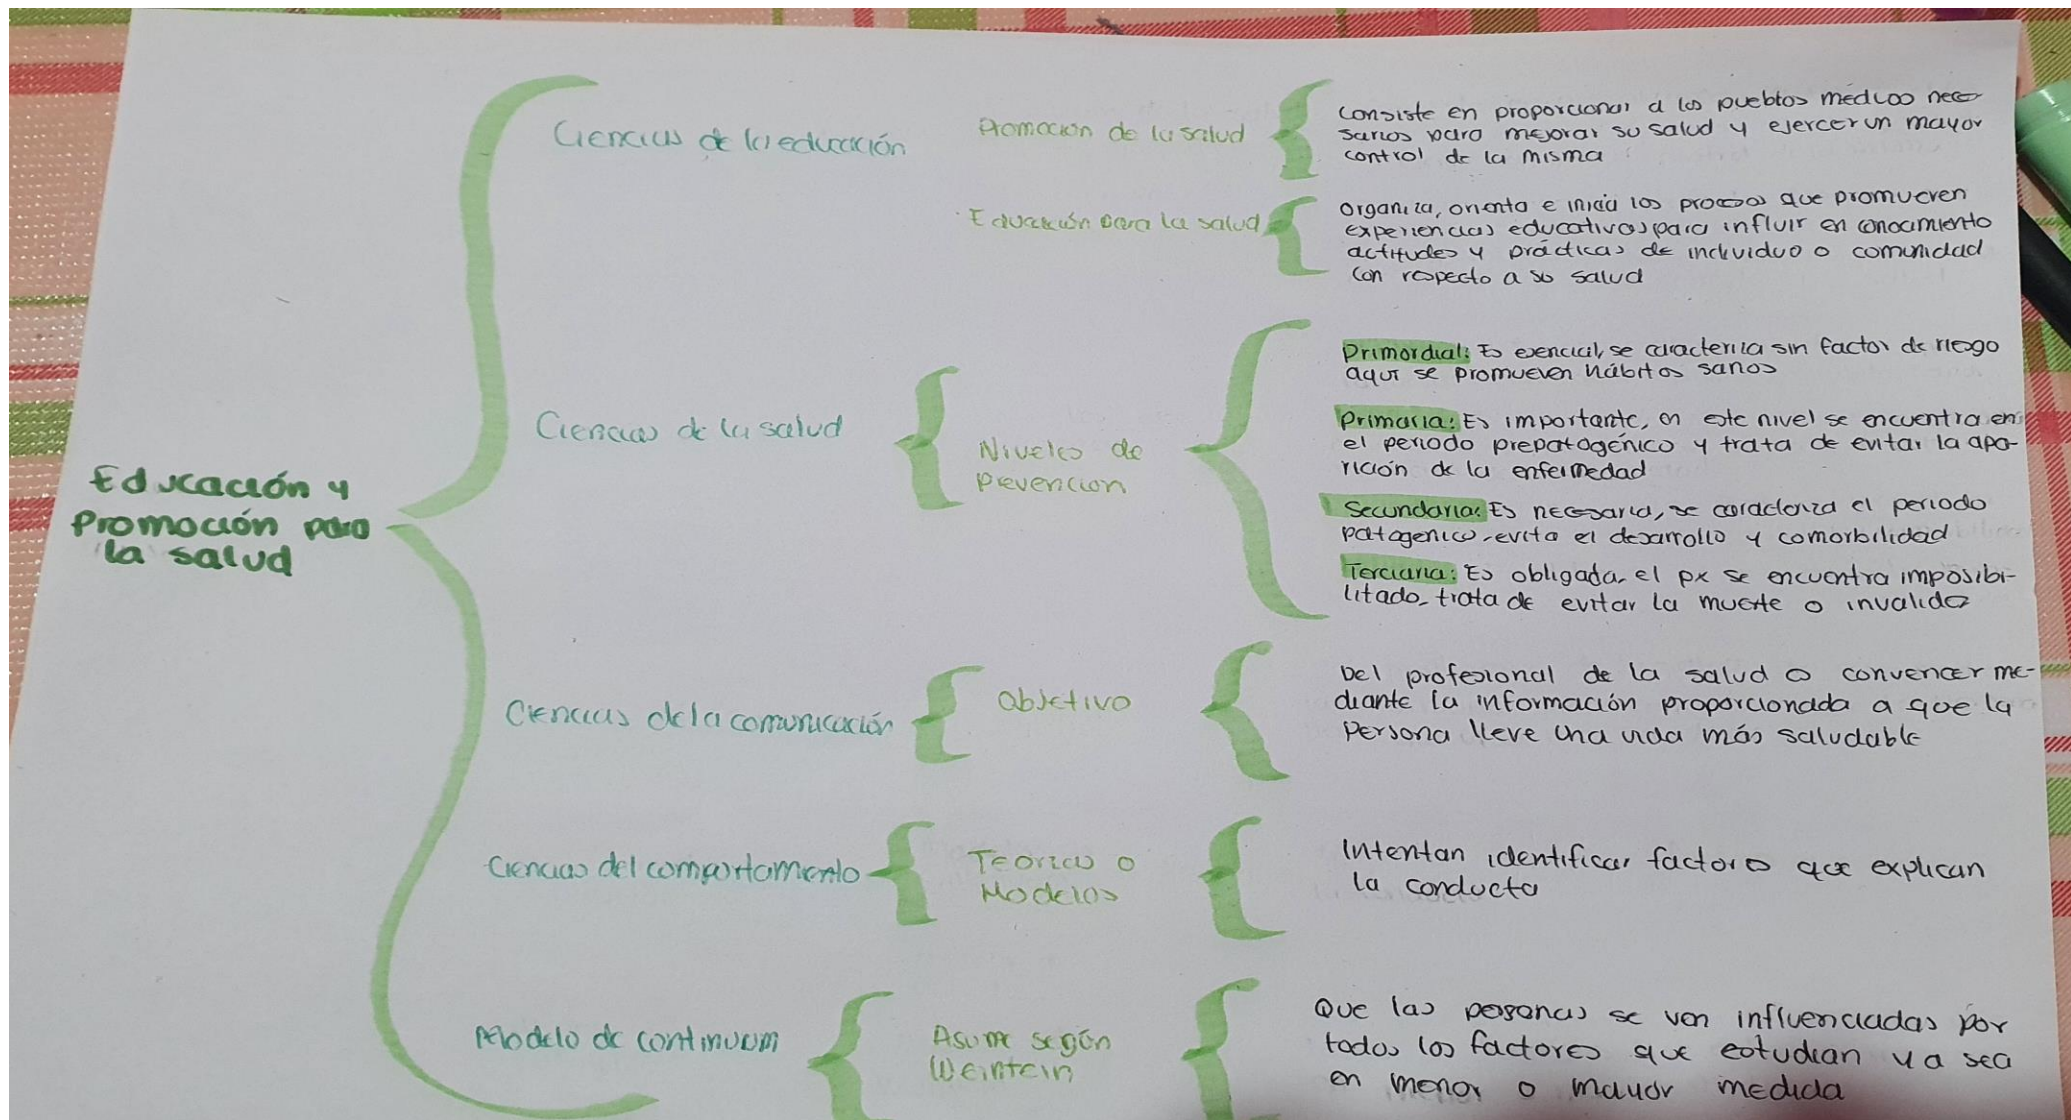 Educación y
Promoción para
la salud
Ciencias de la educación
Promocion de la salud
consiste en proporcionar a los pueblos medios nece-
sarios para mejorar su salud y ejercer un mayor
control de la misma
Educación para la salud
Organiza, orienta e inicia los procesos que promueven
experiencias educativas para influir en conocimiento
actitudes y prácticas de individuo o comunidad
con respecto a su salud
Ciencias de la salud
Niveles de
prevencion
Primordial: Es esencial, se caracteriza sin factor de riesgo
aqui se promueven hábitos sanos
Primaria: Es importante, en este nivel se encuentra en
el periodo prepatogénico y trata de evitar la apa-
rición de la enfermedad
Secundaria: Es necesaria, se caracteriza el periodo
patogenico, evita el desarrollo y comorbilidad
Terciaria: Es obligada, el px se encuentra imposibi-
litado, trata de evitar la muerte o invalidez
Ciencias de la comunicación
Objetivo
Del profesional de la salud es convencer me-
diante la información proporcionada a que la
persona lleve una vida más saludable
Ciencias del comportamiento
Teorias o
Modelos
Intentan identificar factores que explican
la conducta
Modelo de continuum
Asume según
Weintein
Que las personas se ven influenciadas por
todos los factores que estudian ya sea
en menor o mayor medida